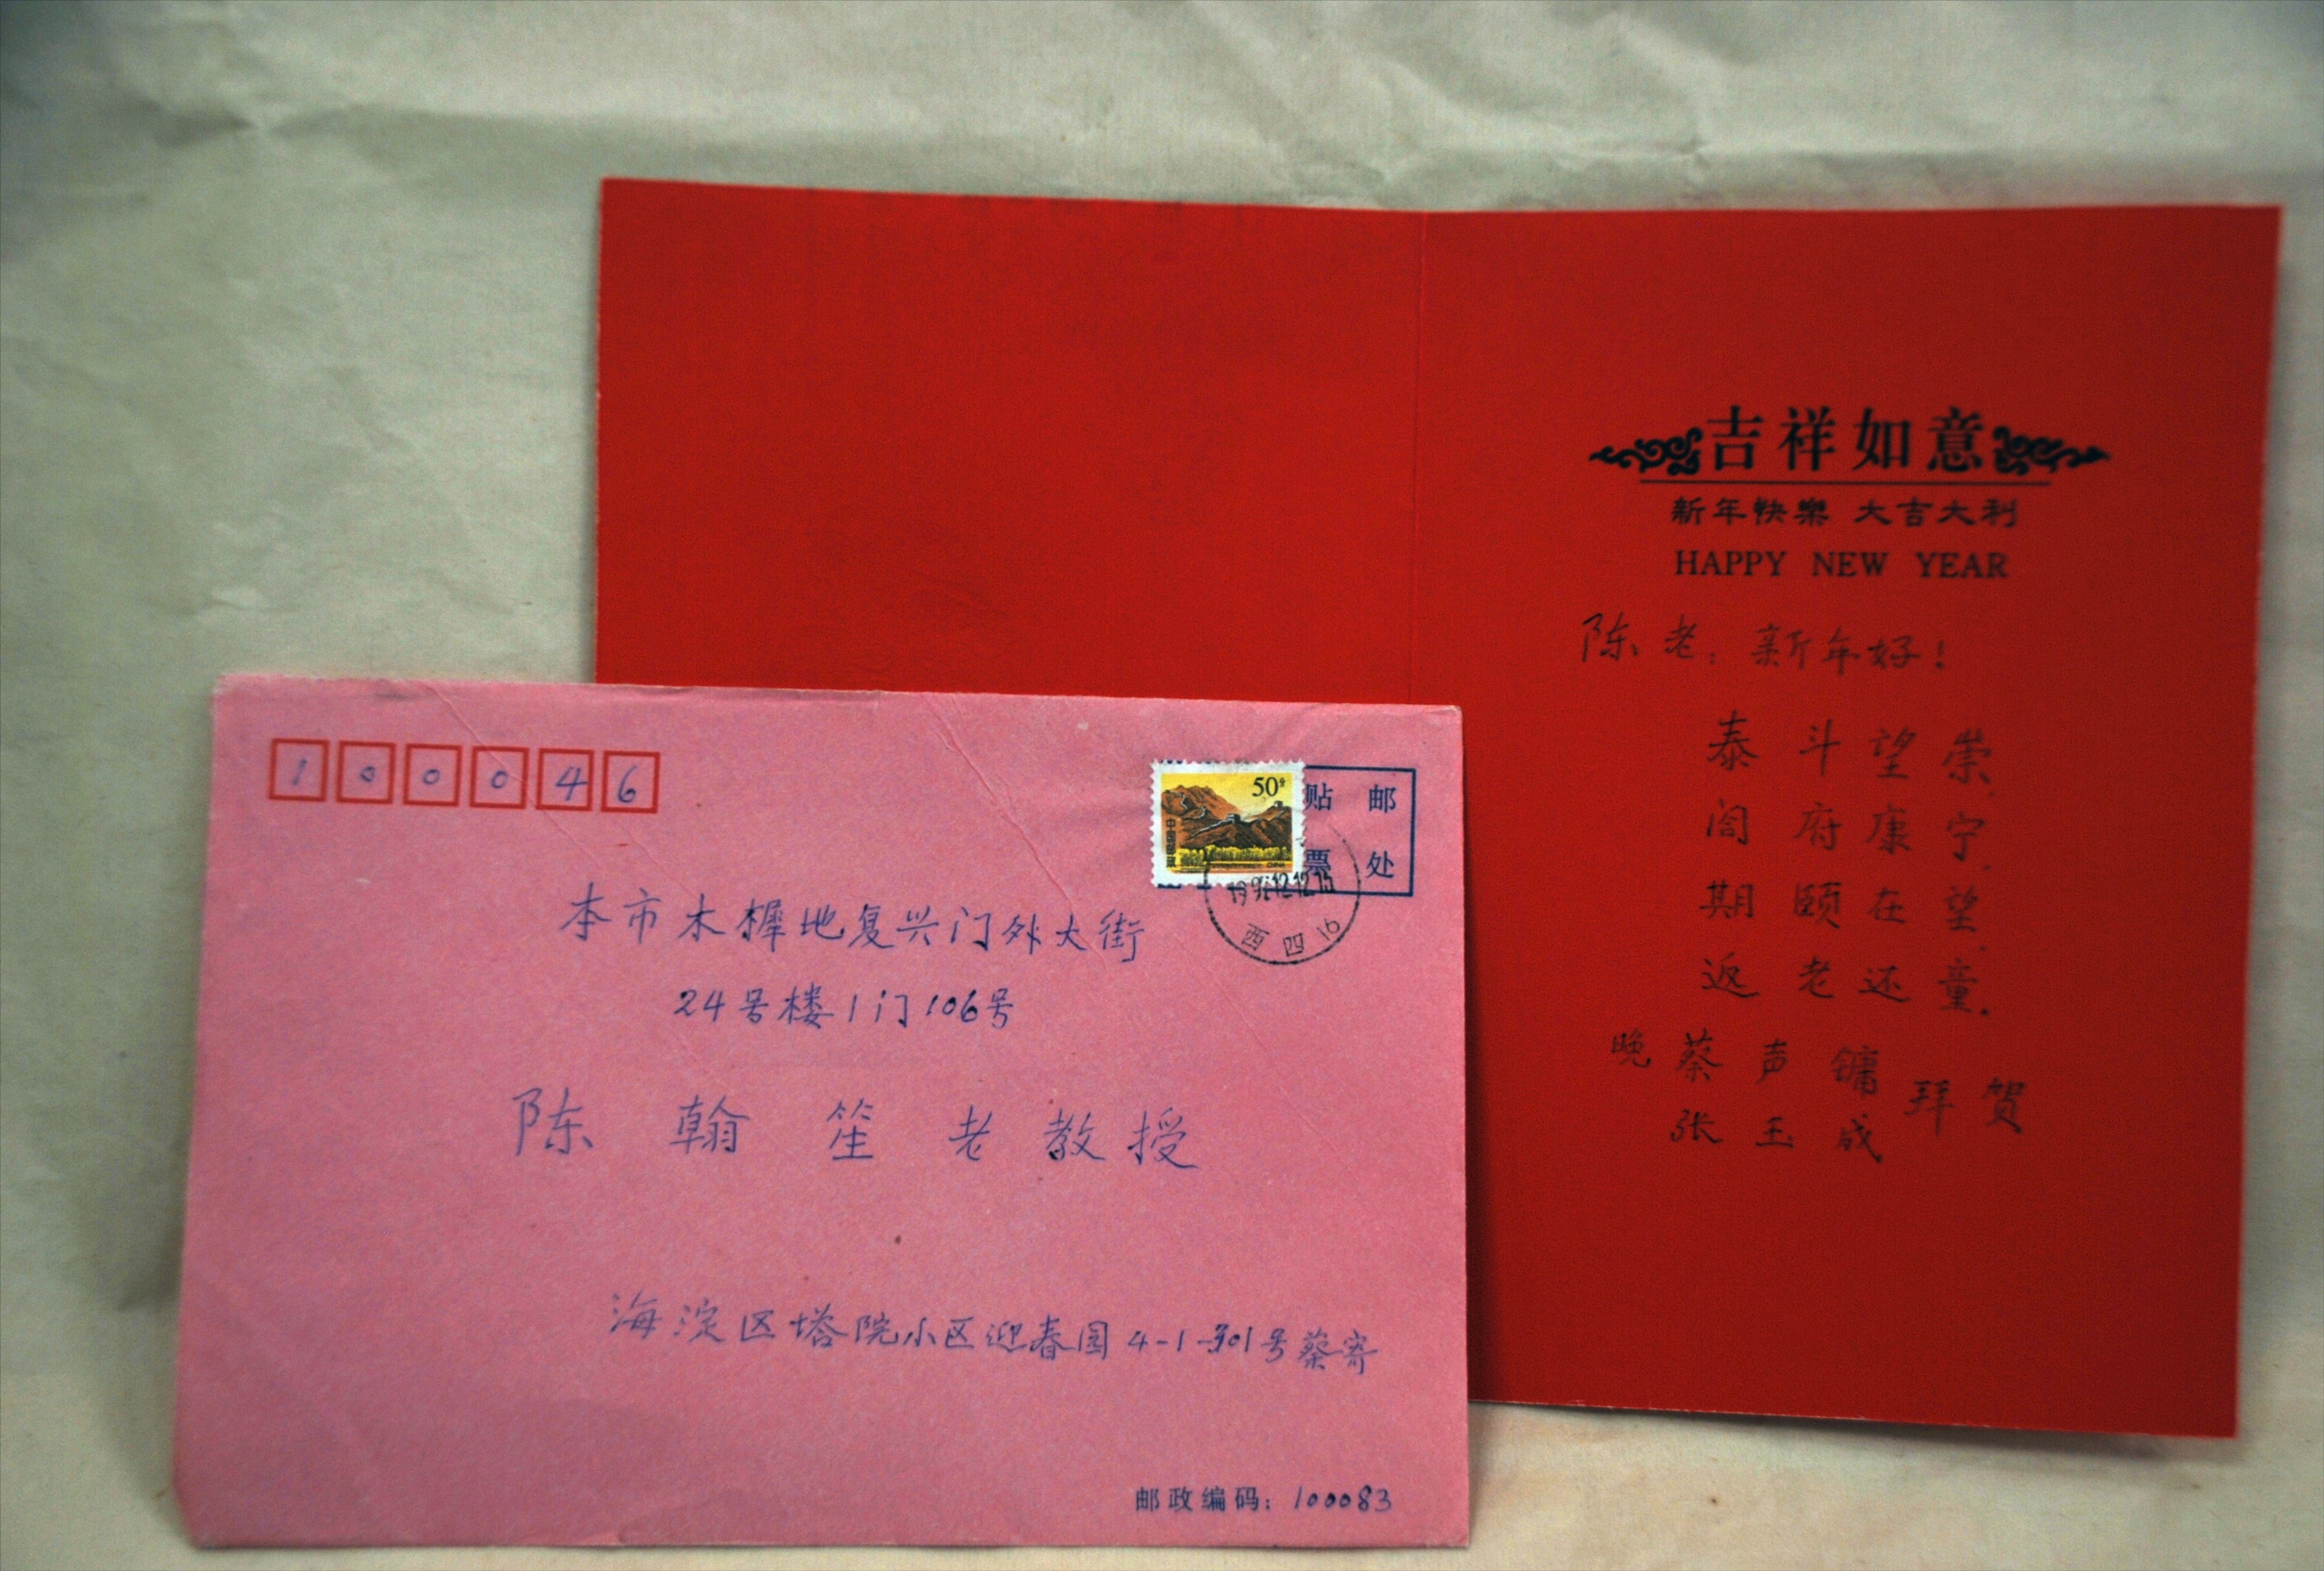 100046
50分
中国邮政
CHINA
贴 邮
票 处
西四 16
本市木樨地复兴门外大街
24号楼1门106号
陈翰笙老教授
海淀区塔院小区迎春园4-1-301号蔡寄
邮政编码：100083
吉祥如意
新年快樂 大吉大利
HAPPY NEW YEAR
陈老：新年好！
泰斗望崇，
阁府康宁，
期颐在望，
返老还童。
晚 蔡声镛
张玉成
拜贺